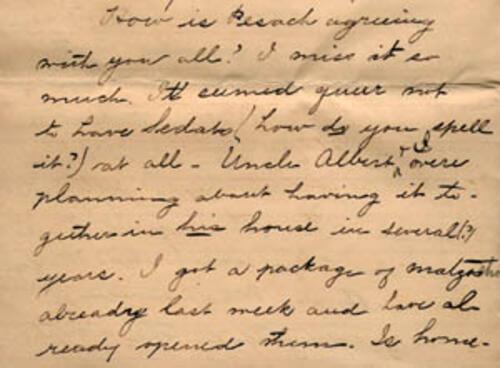 How is Pesach agreeing
with you all? I miss it so
much. It seemed queer not
to have Sedars (how do you spell
it?) at all - Uncle Albert + I were
planning about having it to-
gether in his house in several(?)
years. I got a package of matzoths
already last week and have al-
ready opened them. Is home-